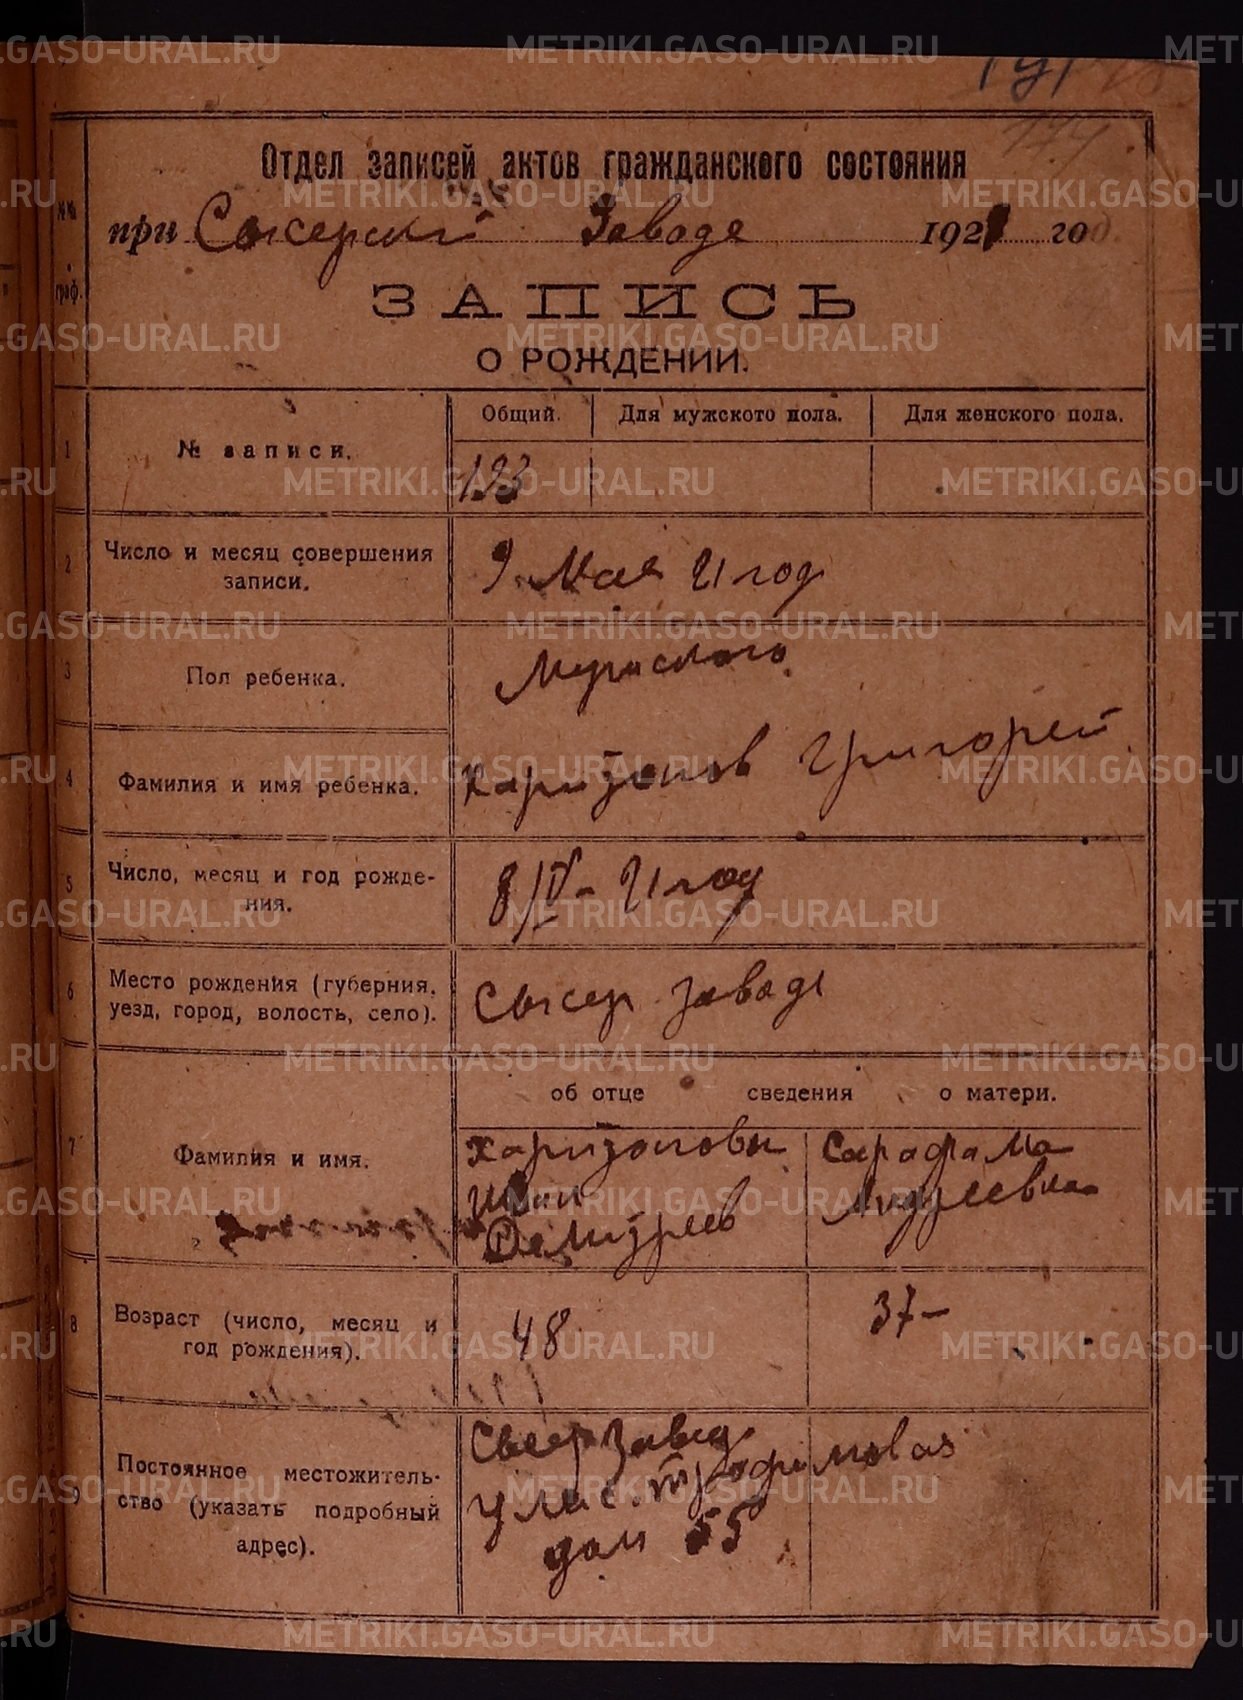 Отдел записей актов гражданского состояния
№№ граф.
при Сысерский Заводе 1921 год.
ЗАПИСЬ
О РОЖДЕНИИ.
1 № записи. Общий. Для мужского пола. Для женского пола.
193
2 Число и месяц совершения записи.
9 Мая 21 год
3 Пол ребенка.
Мужского
4 Фамилия и имя ребенка.
Харизонов Григорей
5 Число, месяц и год рожде-
ния.
8/IV - 21 году
6 Место рождения (губерния,
уезд, город, волость, село).
Сысер. заводе
об отце сведения о матери.
7 Фамилия и имя.
Харизоновы Сарафама
Иван Андреевна
Дмитреев
8 Возраст (число, месяц и
год рождения).
48 37-
9 Постоянное местожитель-
ство (указать подробный
адрес).
Сысер Завод
улис. Трофимовая
дом 55
METRIKI.GASO-URAL.RU